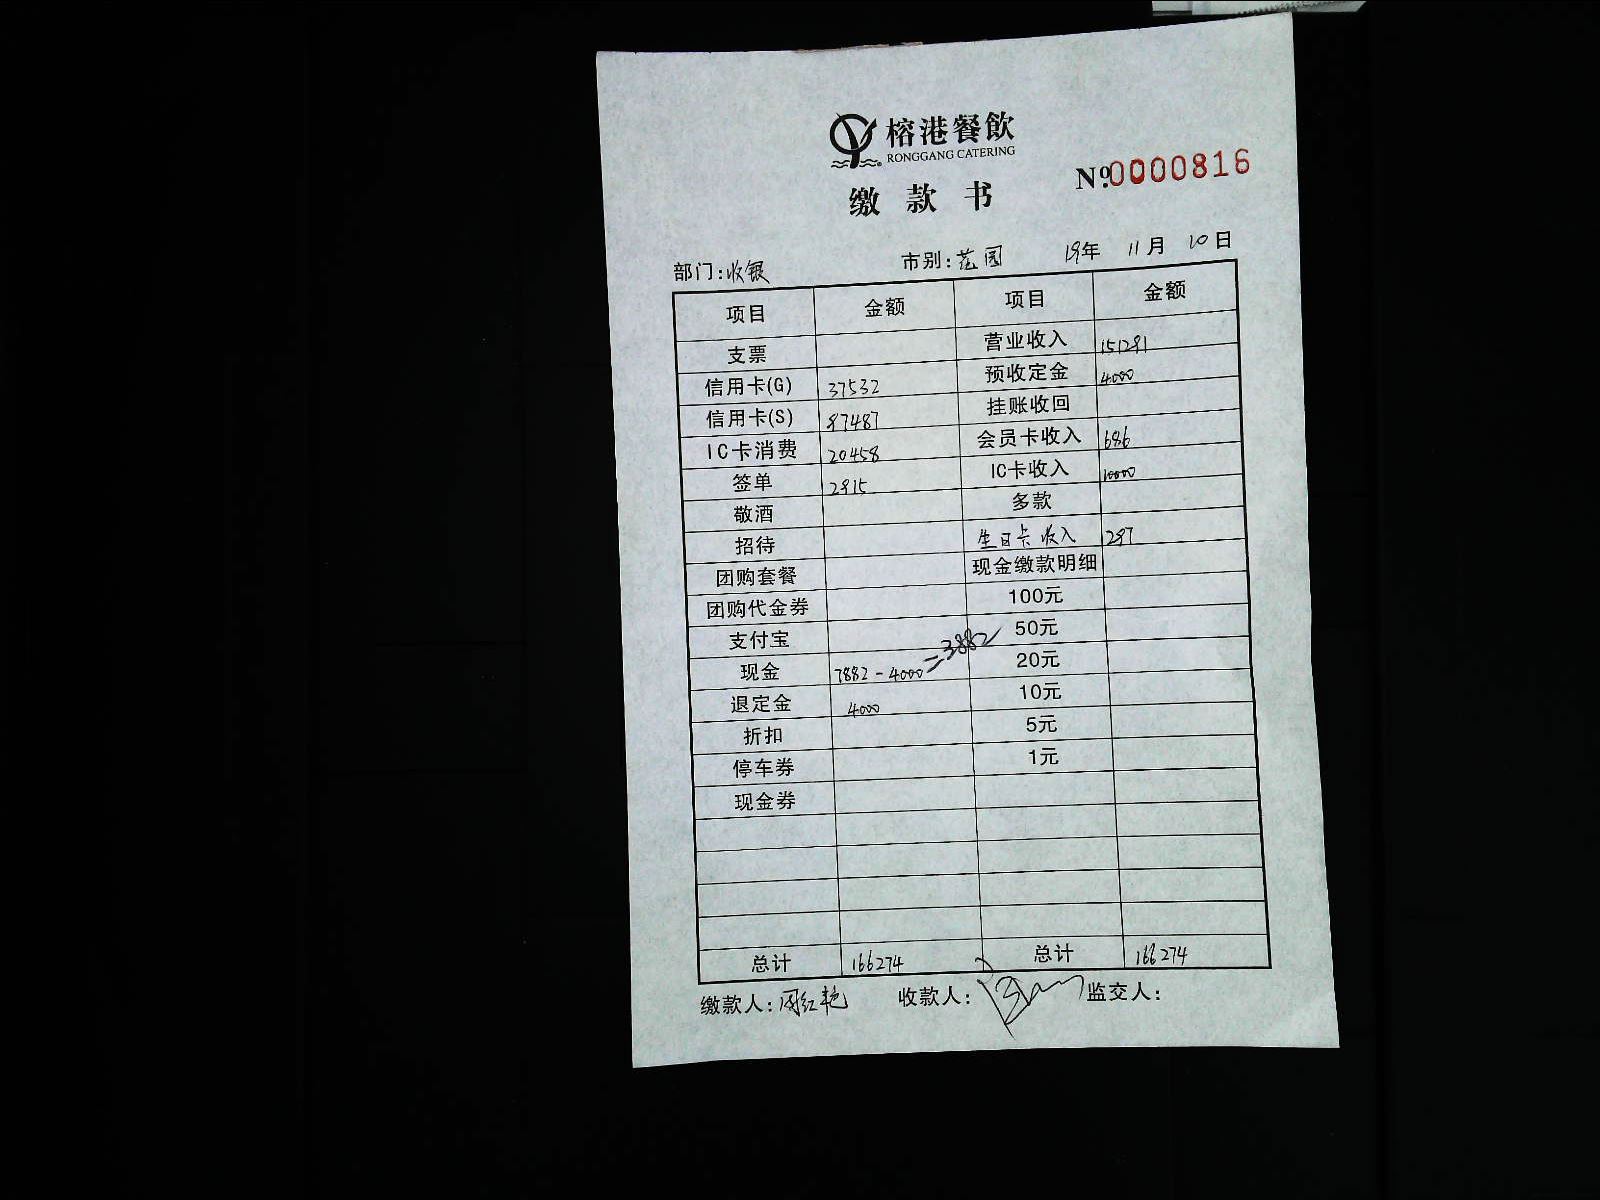 榕港餐飲
RONGGANG CATERING
缴款书
№0000816
部门:收银 市别: 19年 11月 10日
项目 金额 项目 金额
支票 营业收入 151291
信用卡(G) 37532 预收定金 4000
信用卡(S) 97487 挂账收回
IC卡消费 20458 会员卡收入 686
签单 2915 IC卡收入 10000
敬酒 多款
招待 生日卡收入 297
团购套餐 现金缴款明细
团购代金券 100元
支付宝 50元
现金 7882-4000=3882 20元
退定金 4000 10元
折扣 5元
停车券 1元
现金券
总计 166274 总计 166274
缴款人:周红艳 收款人: 监交人: